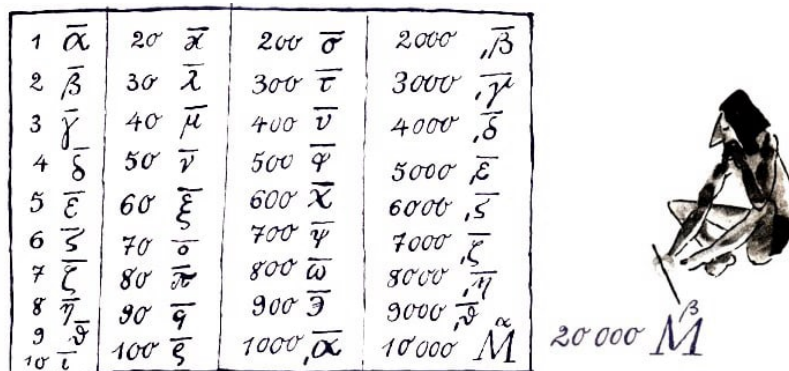 1 α̅ 20 ϰ̅ 200 σ̅ 2000 ͵β̅
2 β̅ 30 λ̅ 300 τ̅ 3000 ͵γ̅
3 γ̅ 40 μ̅ 400 υ̅ 4000 ͵δ̅
4 δ̅ 50 ν̅ 500 φ̅ 5000 ͵ε̅
5 ε̅ 60 ξ̅ 600 χ̅ 6000 ͵ϛ̅
6 ϛ̅ 70 ο̅ 700 ψ̅ 7000 ͵ζ̅
7 ζ̅ 80 π̅ 800 ω̅ 8000 ͵η̅
8 η̅ 90 ϥ̅ 900 Э̅ 9000 ͵ϑ̅
9 ϑ̅ 100 ρ̅ 1000 ͵α̅ 10000 M α
10 ι̅
20 000 M β